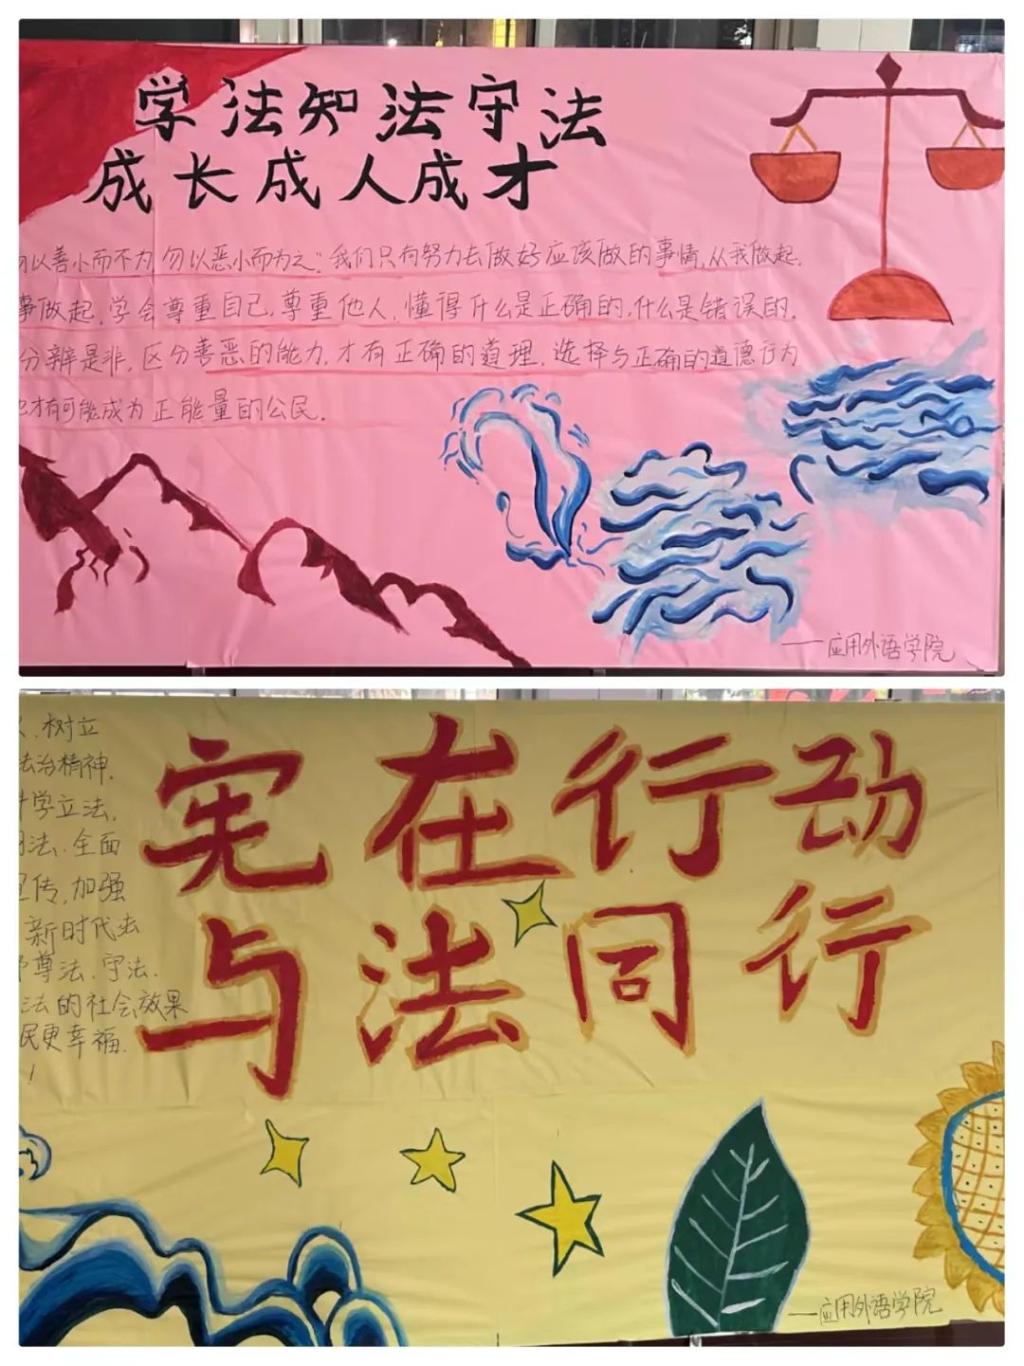 学法知法守法
成长成人成才
以善小而不为 勿以恶小而为之”我们只有努力去做好应该做的事情,从我做起.
事做起,学会尊重自己,尊重他人,懂得什么是正确的,什么是错误的.
分辨是非,区分善恶的能力,才有正确的道理,选择与正确的道德行为
才有可能成为正能量的公民.
——应用外语学院
树立
法治精神.
学立法,
法.全面
宣传,加强
新时代法
尊法.守法.
法的社会效果
民更幸福.
!
宪在行动
与法同行
——应用外语学院